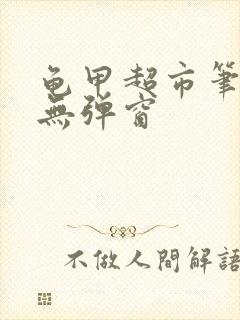 龟甲超市筆
無弹窗
不做人間解語